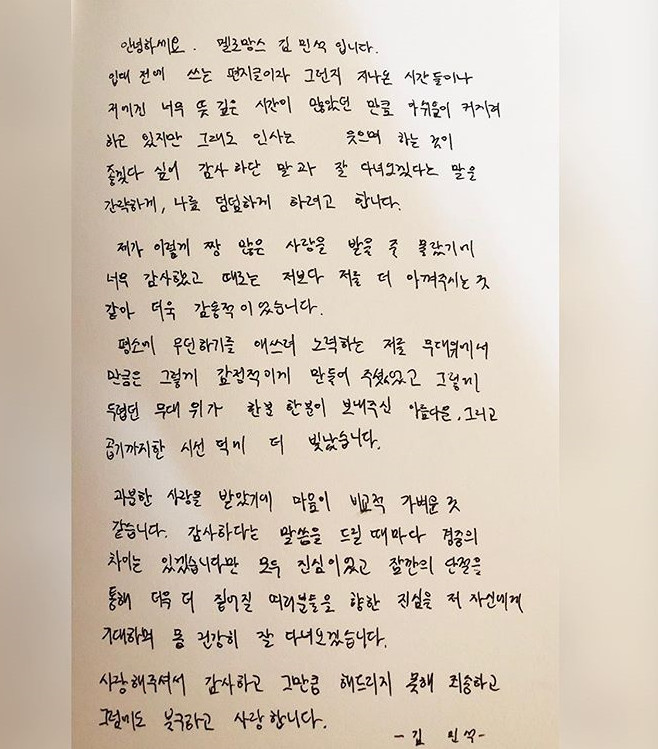 안녕하세요. 멜로망스 김민석 입니다.
입대 전에 쓰는 편지글이자 그런지 지나온 시간들이나
저에겐 너무 뜻 깊은 시간이 많았던 만큼 아쉬움이 커지려
하고 있지만 그래도 인사는 웃으며 하는 것이
좋겠다 싶어 감사하단 말과 잘 다녀오겠다는 말을
간략하게, 나름 덤덤하게 하려고 합니다.
제가 이렇게 짱 많은 사랑을 받을 줄 몰랐기에
너무 감사했고 때로는 저보다 저를 더 아껴주시는 것
같아 더욱 감동적이었습니다.
평소에 무던하기를 애쓰려 노력하는 저를 무대위에서
만큼은 그렇게 감정적이게 만들어 주셨었고 그렇게
두렵던 무대 위가 한분 한분이 보내주신 아름다운, 그리고
곱기까지한 시선 덕에 더 빛났습니다.
과분한 사랑을 받았기에 마음이 비교적 가벼운 것
같습니다. 감사하다는 말씀을 드릴 때마다 경중의
차이는 있겠습니다만 모두 진심이었고 잠깐의 단절을
통해 더욱 더 짙어질 여러분들을 향한 진심을 저 자신에게
기대하며 몸 건강히 잘 다녀오겠습니다.
사랑해주셔서 감사하고 그만큼 해드리지 못해 죄송하고
그럼에도 불구하고 사랑합니다.
- 김 민석 -